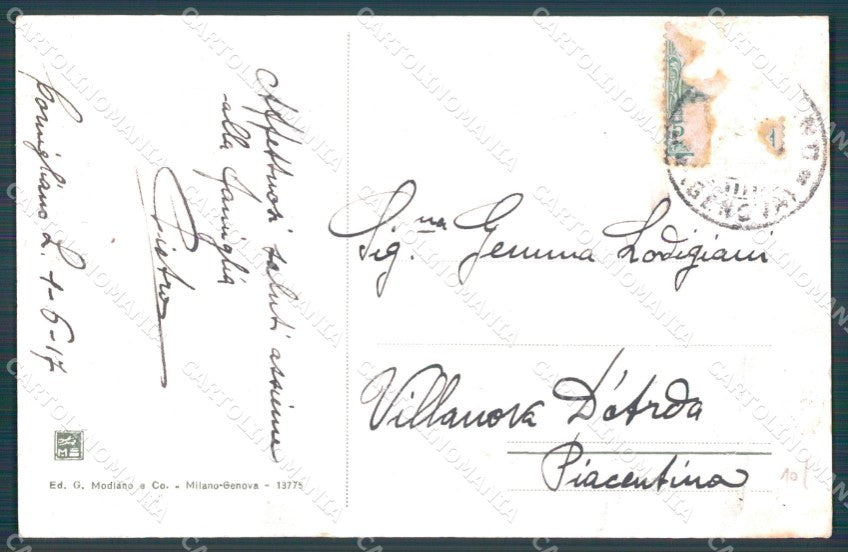 Cornigliano L. 1-6-17
Affettuosi saluti assieme
alla famiglia
Pietro
Sig.na Gemma Lodigiani
Villanova D'Arda
Piacentina
(GENOVA)
10
Ed. G. Modiano e Co. - Milano-Genova - 13775
CARTOLINOMANIA